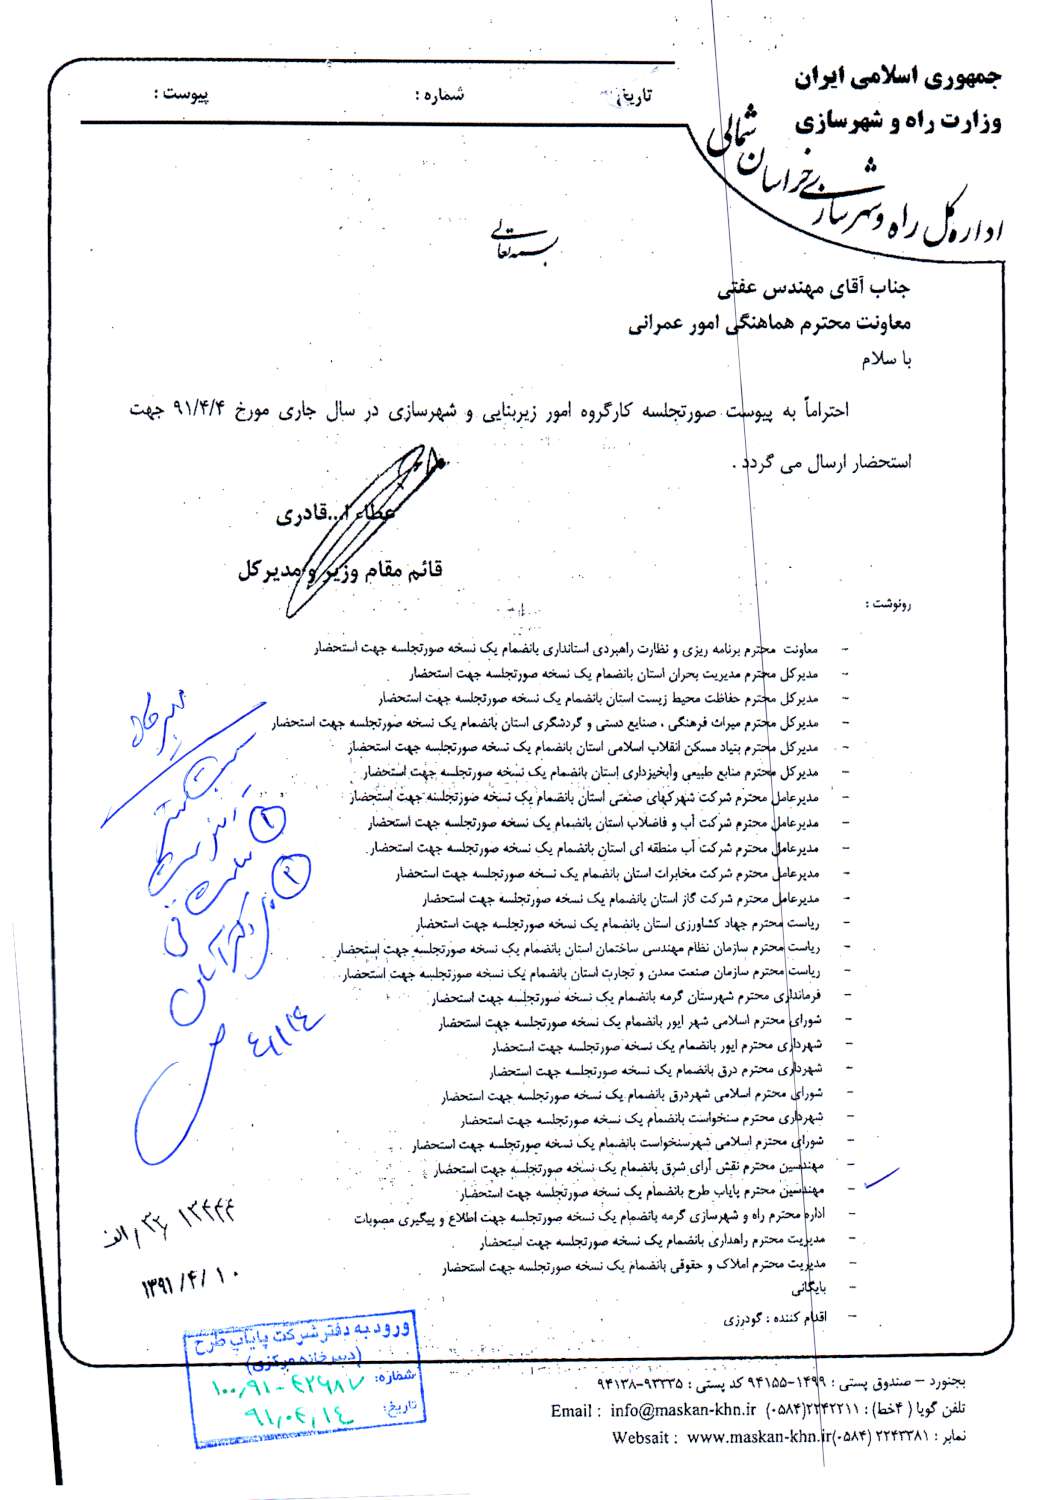 جمهوری اسلامی ایران
وزارت راه و شهرسازی
اداره کل راه و شهرسازی خراسان شمالی
تاریخ:
شماره :
پیوست :
بسمه تعالی
جناب آقای مهندس عفتی
معاونت محترم هماهنگی امور عمرانی
با سلام
احتراماً به پیوست صورتجلسه کارگروه امور زیربنایی و شهرسازی در سال جاری مورخ ۹۱/۴/۴ جهت
استحضار ارسال می گردد .
عطاء ا...قادری
قائم مقام وزیر و مدیرکل
رونوشت :
- معاونت محترم برنامه ریزی و نظارت راهبردی استانداری بانضمام یک نسخه صورتجلسه جهت استحضار
- مدیرکل محترم مدیریت بحران استان بانضمام یک نسخه صورتجلسه جهت استحضار
- مدیرکل محترم حفاظت محیط زیست استان بانضمام یک نسخه صورتجلسه جهت استحضار
- مدیرکل محترم میراث فرهنگی ، صنایع دستی و گردشگری استان بانضمام یک نسخه صورتجلسه جهت استحضار
- مدیرکل محترم بنیاد مسکن انقلاب اسلامی استان بانضمام یک نسخه صورتجلسه جهت استحضار
- مدیرکل محترم منابع طبیعی وآبخیزداری استان بانضمام یک نسخه صورتجلسه جهت استحضار
- مدیرعامل محترم شرکت شهرکهای صنعتی استان بانضمام یک نسخه صورتجلسه جهت استحضار
- مدیرعامل محترم شرکت آب و فاضلاب استان بانضمام یک نسخه صورتجلسه جهت استحضار
- مدیرعامل محترم شرکت آب منطقه ای استان بانضمام یک نسخه صورتجلسه جهت استحضار
- مدیرعامل محترم شرکت مخابرات استان بانضمام یک نسخه صورتجلسه جهت استحضار
- مدیرعامل محترم شرکت گاز استان بانضمام یک نسخه صورتجلسه جهت استحضار
- ریاست محترم جهاد کشاورزی استان بانضمام یک نسخه صورتجلسه جهت استحضار
- ریاست محترم سازمان نظام مهندسی ساختمان استان بانضمام یک نسخه صورتجلسه جهت استحضار
- ریاست محترم سازمان صنعت معدن و تجارت استان بانضمام یک نسخه صورتجلسه جهت استحضار
- فرمانداری محترم شهرستان گرمه بانضمام یک نسخه صورتجلسه جهت استحضار
- شورای محترم اسلامی شهر ایور بانضمام یک نسخه صورتجلسه جهت استحضار
- شهرداری محترم ایور بانضمام یک نسخه صورتجلسه جهت استحضار
- شهرداری محترم درق بانضمام یک نسخه صورتجلسه جهت استحضار
- شورای محترم اسلامی شهردرق بانضمام یک نسخه صورتجلسه جهت استحضار
- شهرداری محترم سنخواست بانضمام یک نسخه صورتجلسه جهت استحضار
- شورای محترم اسلامی شهرسنخواست بانضمام یک نسخه صورتجلسه جهت استحضار
- مهندسین محترم نقش آرای شرق بانضمام یک نسخه صورتجلسه جهت استحضار
- مهندسین محترم پایاب طرح بانضمام یک نسخه صورتجلسه جهت استحضار
- اداره محترم راه و شهرسازی گرمه بانضمام یک نسخه صورتجلسه جهت اطلاع و پیگیری مصوبات
- مدیریت محترم راهداری بانضمام یک نسخه صورتجلسه جهت استحضار
- مدیریت محترم املاک و حقوقی بانضمام یک نسخه صورتجلسه جهت استحضار
- بایگانی
- اقدام کننده : گودرزی
۱۳۴۴۴
الف
۱۳۹۱/۴/۱۰
ورود به دفتر شرکت پایاب طرح
(دبیرخانه مرکزی)
شماره: ۱۰۰٫۹۱-۴۲۹۸۷
تاریخ: ۹۱٫۰۴٫۱۴
بجنورد – صندوق پستی : ۱۴۹۹-۹۴۱۵۵ کد پستی : ۹۳۳۳۵-۹۴۱۳۸
تلفن گویا ( ۴خط) : ۲۲۴۲۲۱۱(۰۵۸۴) Email : info@maskan-khn.ir
نمابر : ۲۲۴۳۳۸۱ (۰۵۸۴) Websait : www.maskan-khn.ir